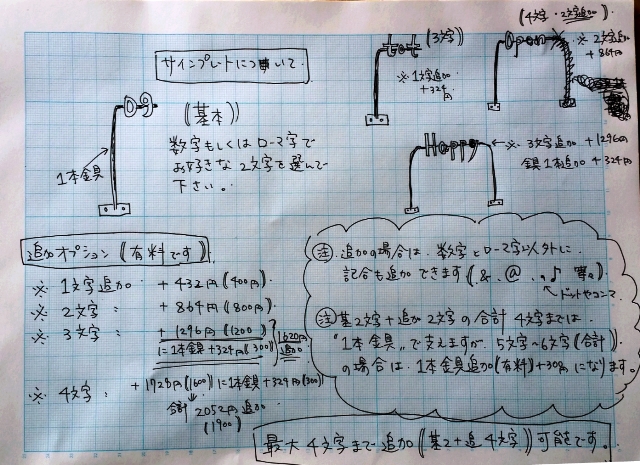 サインプレートについて.
09
1本金具
(基本)
数字もしくはローマ字で
お好きな2文字を選んで
下さい。
tot (3文字)
※1文字追加
+324円
(4文字・2文字追加)
Open
※2文字追加
+864円
Happy
※3文字追加 +1296円
金具1本追加 +324円
追加オプション (有料です)
※ 1文字追加 +432円 (400円)
※ 2文字 〃 +864円 (800円)
※ 3文字 〃 +1296円 (1200
に1本金具+324円(300)
1620円
追加
※ 4文字 〃 +1728円 (1600) に1本金具+324円(300)
合計 2052円追加
(1900)
注 追加の場合は、数字とローマ字以外に
記合も追加できます (&. @. ♪ 等々)
ドットやコンマ
注 基2文字+追加2文字の合計4文字までは
"1本金具"で支えますが、5文字~6文字(合計)
の場合は、1本金具追加(有料)+300円になります。
最大4文字まで追加((基2+追4文字))可能です。